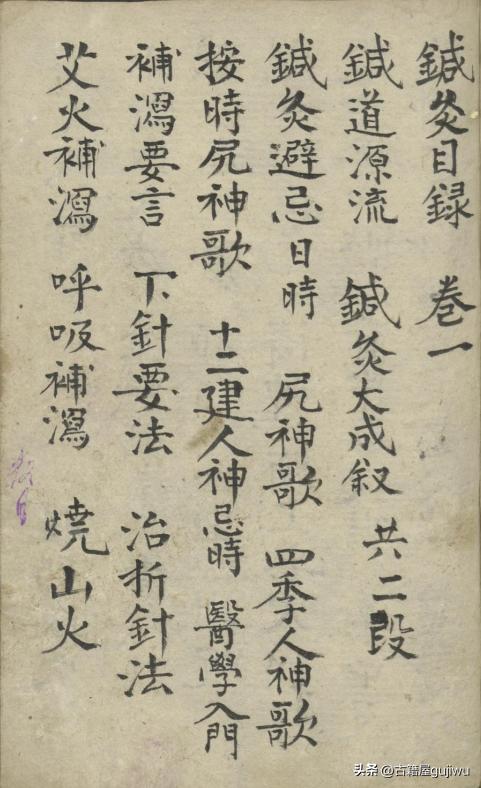 鍼灸目録 卷一
鍼道源流 鍼灸大成叙 共二段
鍼灸避忌日時 尻神歌 四季人神歌
按時尻神歌 十二建人神忌時 醫學入門
補瀉要言 下針要法 治折針法
艾火補瀉 呼吸補瀉 燒山火
头条 @古籍屋gujiwu